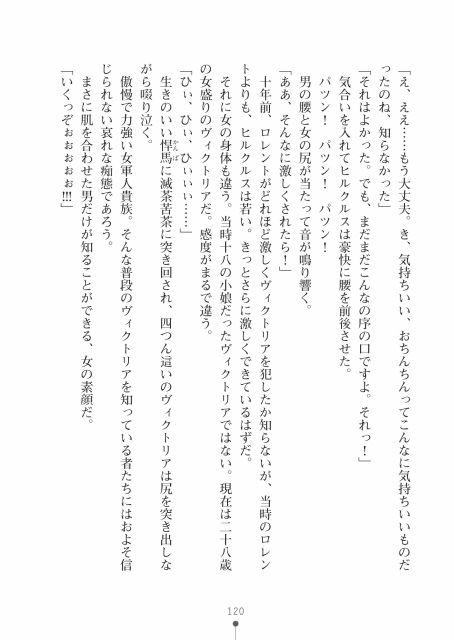 「え、ええ……もう大丈夫。き、気持ちいい、おちんちんってこんなに気持ちいいものだ
ったのね、知らなかった」
「それはよかった。でも、まだまだこんなの序の口ですよ。それっ！」
気合いを入れてヒルクルスは豪快に腰を前後させた。
パツン！　パツン！　パツン！
男の腰と女の尻が当たって音が鳴り響く。
「ああ、そんなに激しくされたら！」
十年前、ロレントがどれほど激しくヴィクトリアを犯したか知らないが、当時のロレン
トよりも、ヒルクルスは若い。きっとさらに激しくできているはずだ。
それに女の身体も違う。当時十八の小娘だったヴィクトリアではない。現在は二十八歳
の女盛りのヴィクトリアだ。感度がまるで違う。
「ひぃ、ひぃ、ひぃぃぃ……」
生きのいい悍馬に滅茶苦茶に突き回され、四つん這いのヴィクトリアは尻を突き出しな
かんば
がら啜り泣く。
傲慢で力強い女軍人貴族。そんな普段のヴィクトリアを知っている者たちにはおよそ信
じられない哀れな痴態であろう。
まさに肌を合わせた男だけが知ることができる、女の素顔だ。
「いくっぞぉぉぉぉぉ!!!」
120